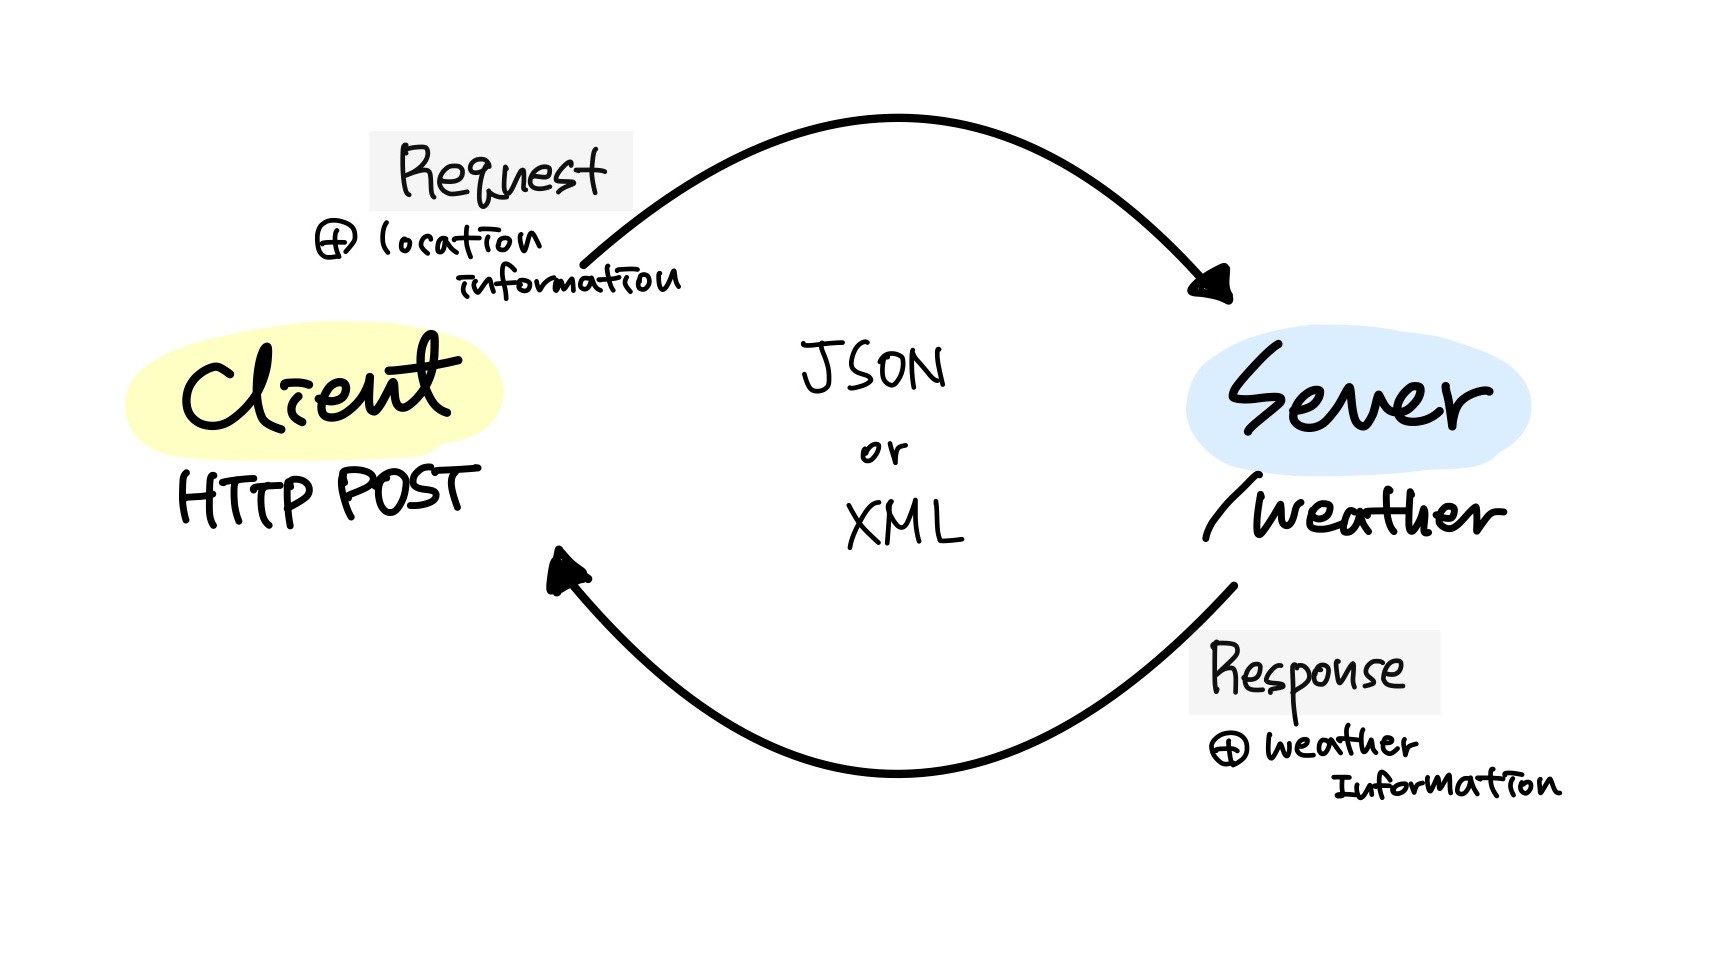 Request
⊕ location
information
Client
HTTP POST
JSON
or
XML
Sever
/weather
Response
⊕ weather
Information